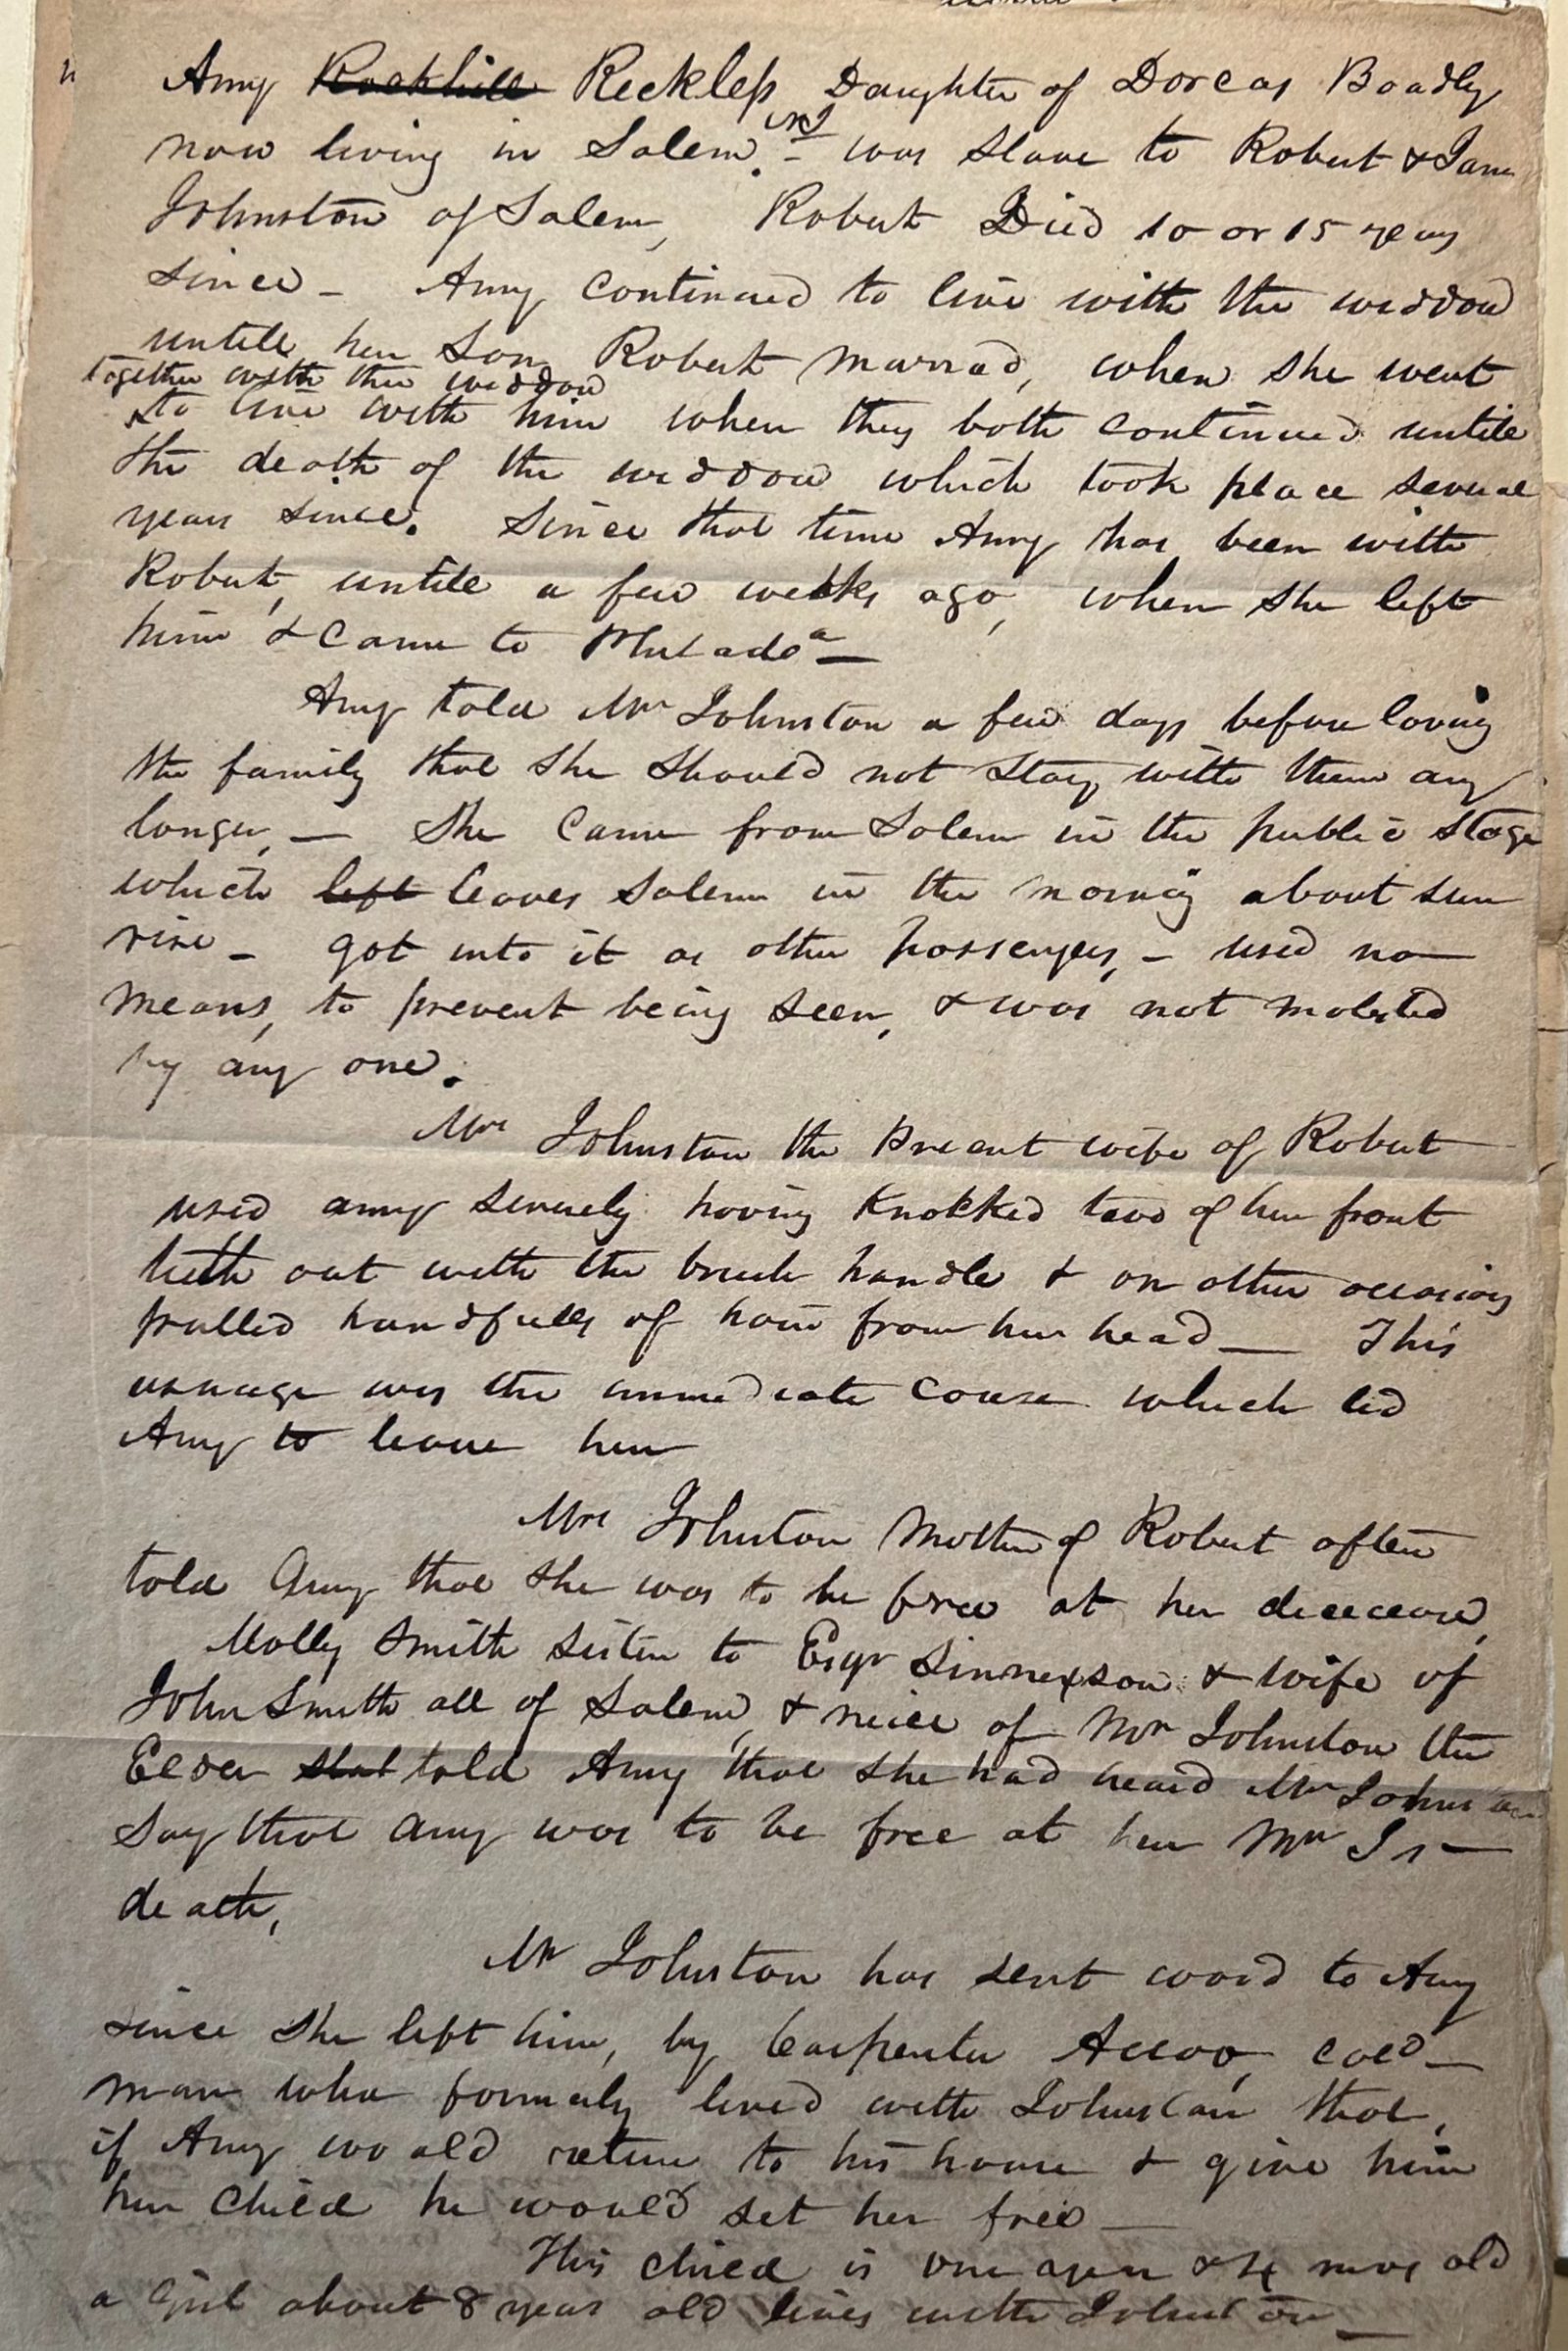 Amy Rockhill Reckless Daughter of Dorcas Boadly
now living in Salem. NJ - was Slave to Robert & Jane
Johnston of Salem, Robert Died 10 or 15 years
since - Amy continued to live with the widdow
untill her Son Robert married, when she went
together with the widdow
to live with him when they both continued untill
the death of the widdow which took place several
years since. Since that time Amy has been with
Robert, untill a few weeks ago, when she left
him & came to Philada -
Amy told Mr Johnston a few days before leaving
the family that she should not stay with them any
longer, - She came from Salem in the public stage
which left leaves Salem in the morning about sun
rise - got into it as other passengers, - used no
means, to prevent being seen, & was not molested
by any one.
Mrs Johnston the present wife of Robert
used amy severely having knokked two of her front
teeth out with the brush handle & on other occasions
pulled handfulls of hair from her head - This
usuage was the immediate cause which led
Amy to leave her
Mrs Johnston Mother of Robert often
told Amy that she was to be free at her deceased,
Molly Smith sister to Esqr Sinnexson & wife of
John Smith all of Salem, & neice of Mrs Johnston the
Elder told Amy that she had heard Mrs Johnston
say that Amy was to be free at her Mrs Js -
death,
Mr Johnston has sent word to Amy
since she left him, by Carpenter Accoo, cold -
man who formerly lived with Johnston that,
if Amy would return to his house & give him
her child he would set her free -
This child is one year & 4 mos old
a Girl about 8 years old lives with Johnston -